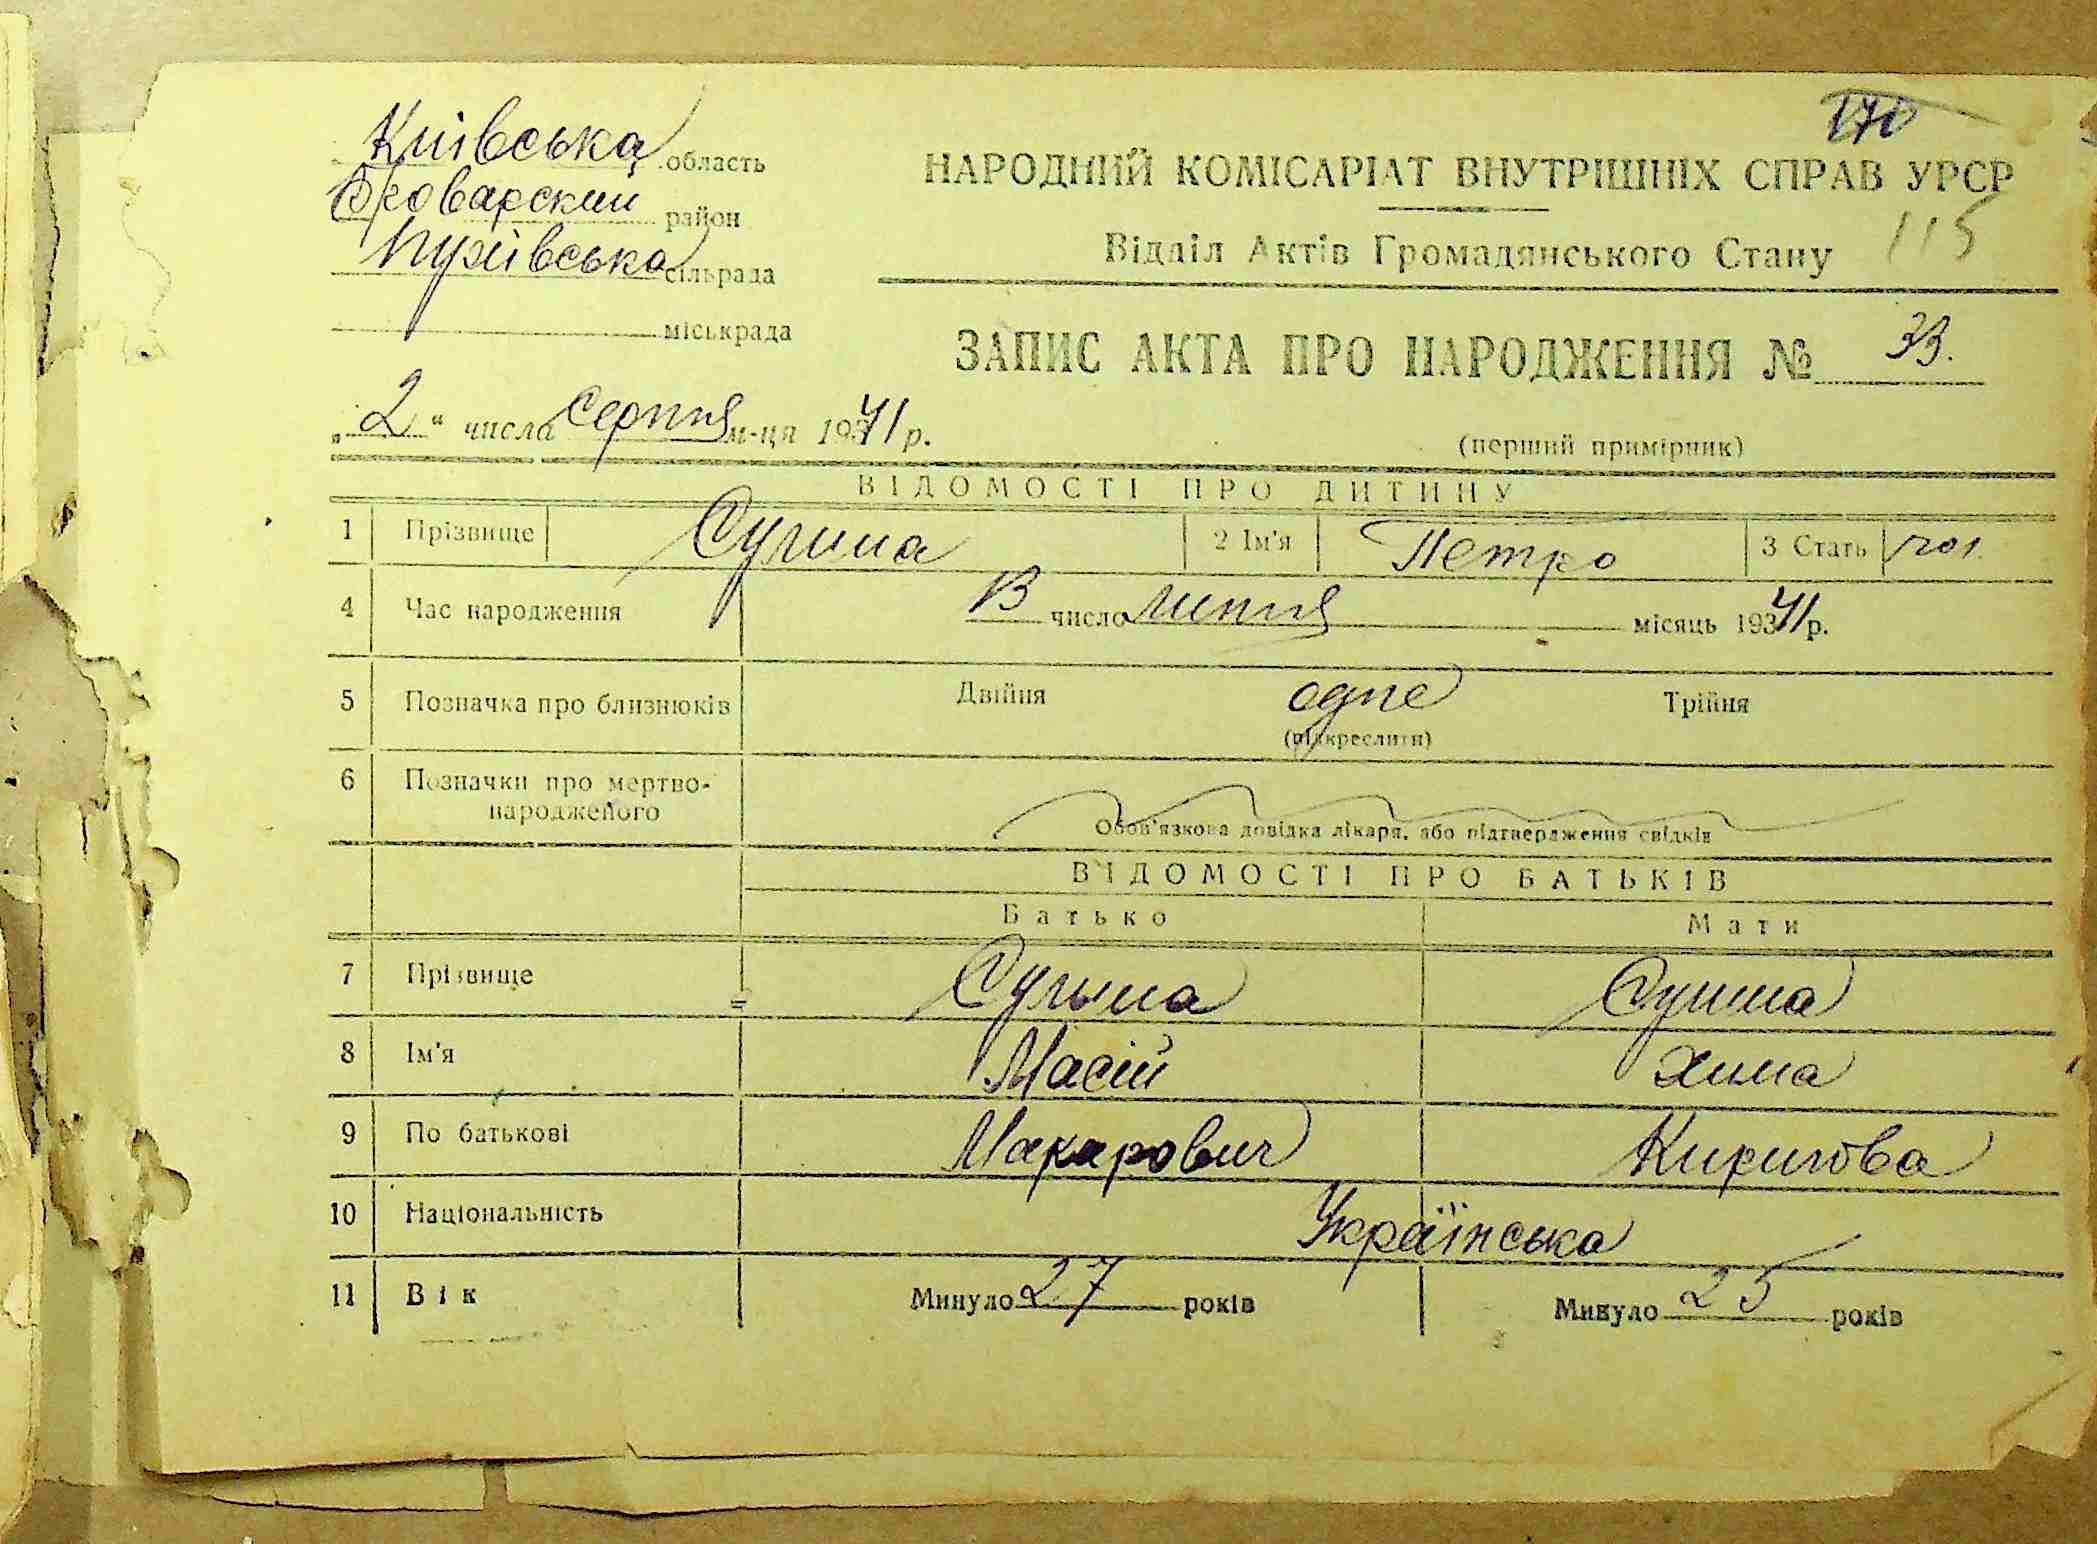 170
Київська область
НАРОДНИЙ КОМІСАРІАТ ВНУТРІШНІХ СПРАВ УРСР
Броварский район
Відділ Актів Громадянського Стану 115
Пухівська сільрада
міськрада
ЗАПИС АКТА ПРО НАРОДЖЕННЯ № 33.
„2“ числа серпня м-ця 1941 р.
(перший примірник)
ВІДОМОСТІ ПРО ДИТИНУ
1 Прізвище 2 Ім'я Петро 3 Стать чол.
4 Час народження 13 число липня місяць 1941 р.
5 Позначка про близнюків Двійня одне Трійня
(підкреслити)
6 Позначки про мертво-
народженого
Обов'язкова довідка лікаря, або підтвердження свідків
ВІДОМОСТІ ПРО БАТЬКІВ
Батько Мати
7 Прізвище
8 Ім'я Масій Хима
9 По батькові Макарович
10 Національність Українська
11 Вік Минуло 27 років Минуло 25 років